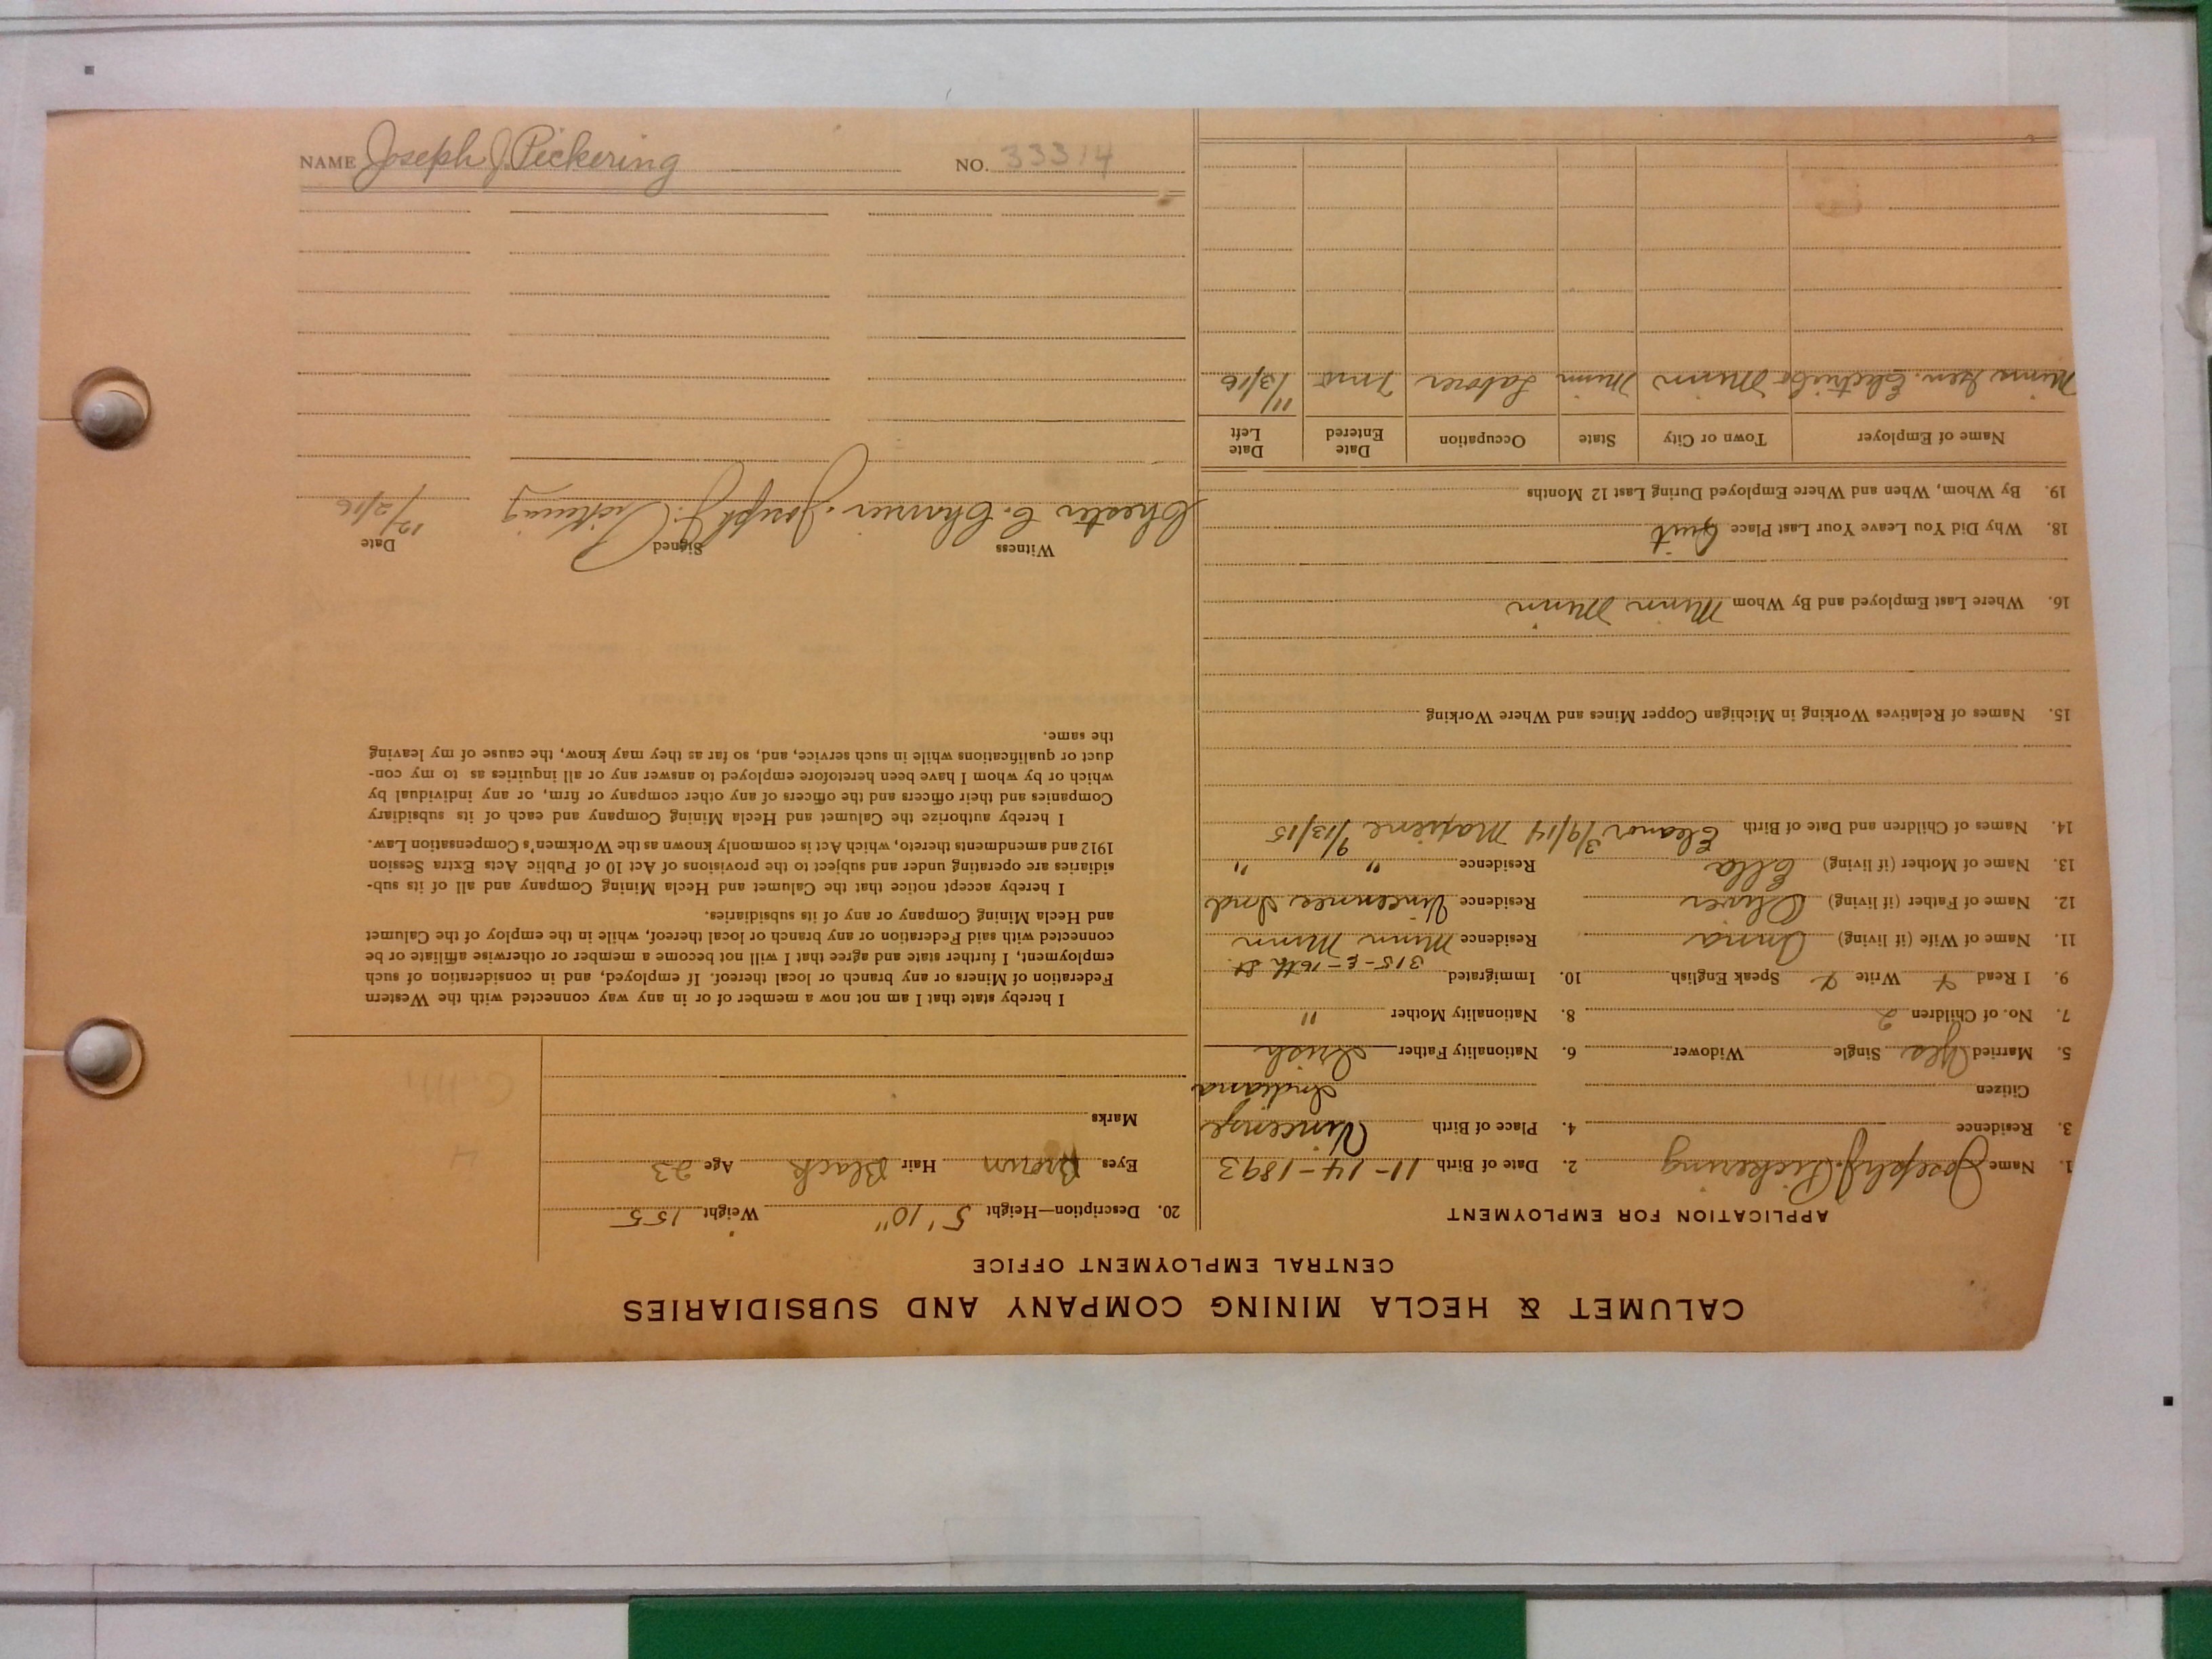 NAME Joseph J. Pickering NO. 33314
CALUMET & HECLA MINING COMPANY AND SUBSIDIARIES
CENTRAL EMPLOYMENT OFFICE
APPLICATION FOR EMPLOYMENT
1. Name Joseph J. Pickering 2. Date of Birth 11-14-1893
3. Residence 4. Place of Birth Vincenze
Citizen Indiana
5. Married Yes Single Widower 6. Nationality Father Irish
7. No. of Children 2 8. Nationality Mother "
9. I Read Write Speak English 10. Immigrated
315-E-16th St.
11. Name of Wife (if living) Anna Residence Minn Minn
12. Name of Father (if living) Oliver Residence Vincennes Ind
13. Name of Mother (if living) Ella Residence " "
14. Names of Children and Date of Birth Eleanor 3/9/14 9/13/15
15. Names of Relatives Working in Michigan Copper Mines and Where Working
16. Where Last Employed and By Whom Minn Minn
18. Why Did You Leave Your Last Place Quit
19. By Whom, When and Where Employed During Last 12 Months
Name of Employer Town or City State Occupation Date Entered Date Left
Minn Gen. Electric Co Minn Minn Laborer 7 mo 11/3/16
20. Description—Height 5' 10" Weight 155
Eyes Brown Hair Black Age 23
Marks
I hereby state that I am not now a member of or in any way connected with the Western
Federation of Miners or any branch or local thereof. If employed, and in consideration of such
employment, I further state and agree that I will not become a member or otherwise affiliate or be
connected with said Federation or any branch or local thereof, while in the employ of the Calumet
and Hecla Mining Company or any of its subsidiaries.
I hereby accept notice that the Calumet and Hecla Mining Company and all of its sub-
sidiaries are operating under and subject to the provisions of Act 10 of Public Acts Extra Session
1912 and amendments thereto, which Act is commonly known as the Workmen's Compensation Law.
I hereby authorize the Calumet and Hecla Mining Company and each of its subsidiary
Companies and their officers and the officers of any other company or firm, or any individual by
which or by whom I have been heretofore employed to answer any or all inquiries as to my con-
duct or qualifications while in such service, and, so far as they may know, the cause of my leaving
the same.
Witness Signed Date
Chester C. Joseph J. Pickering 12/2/16